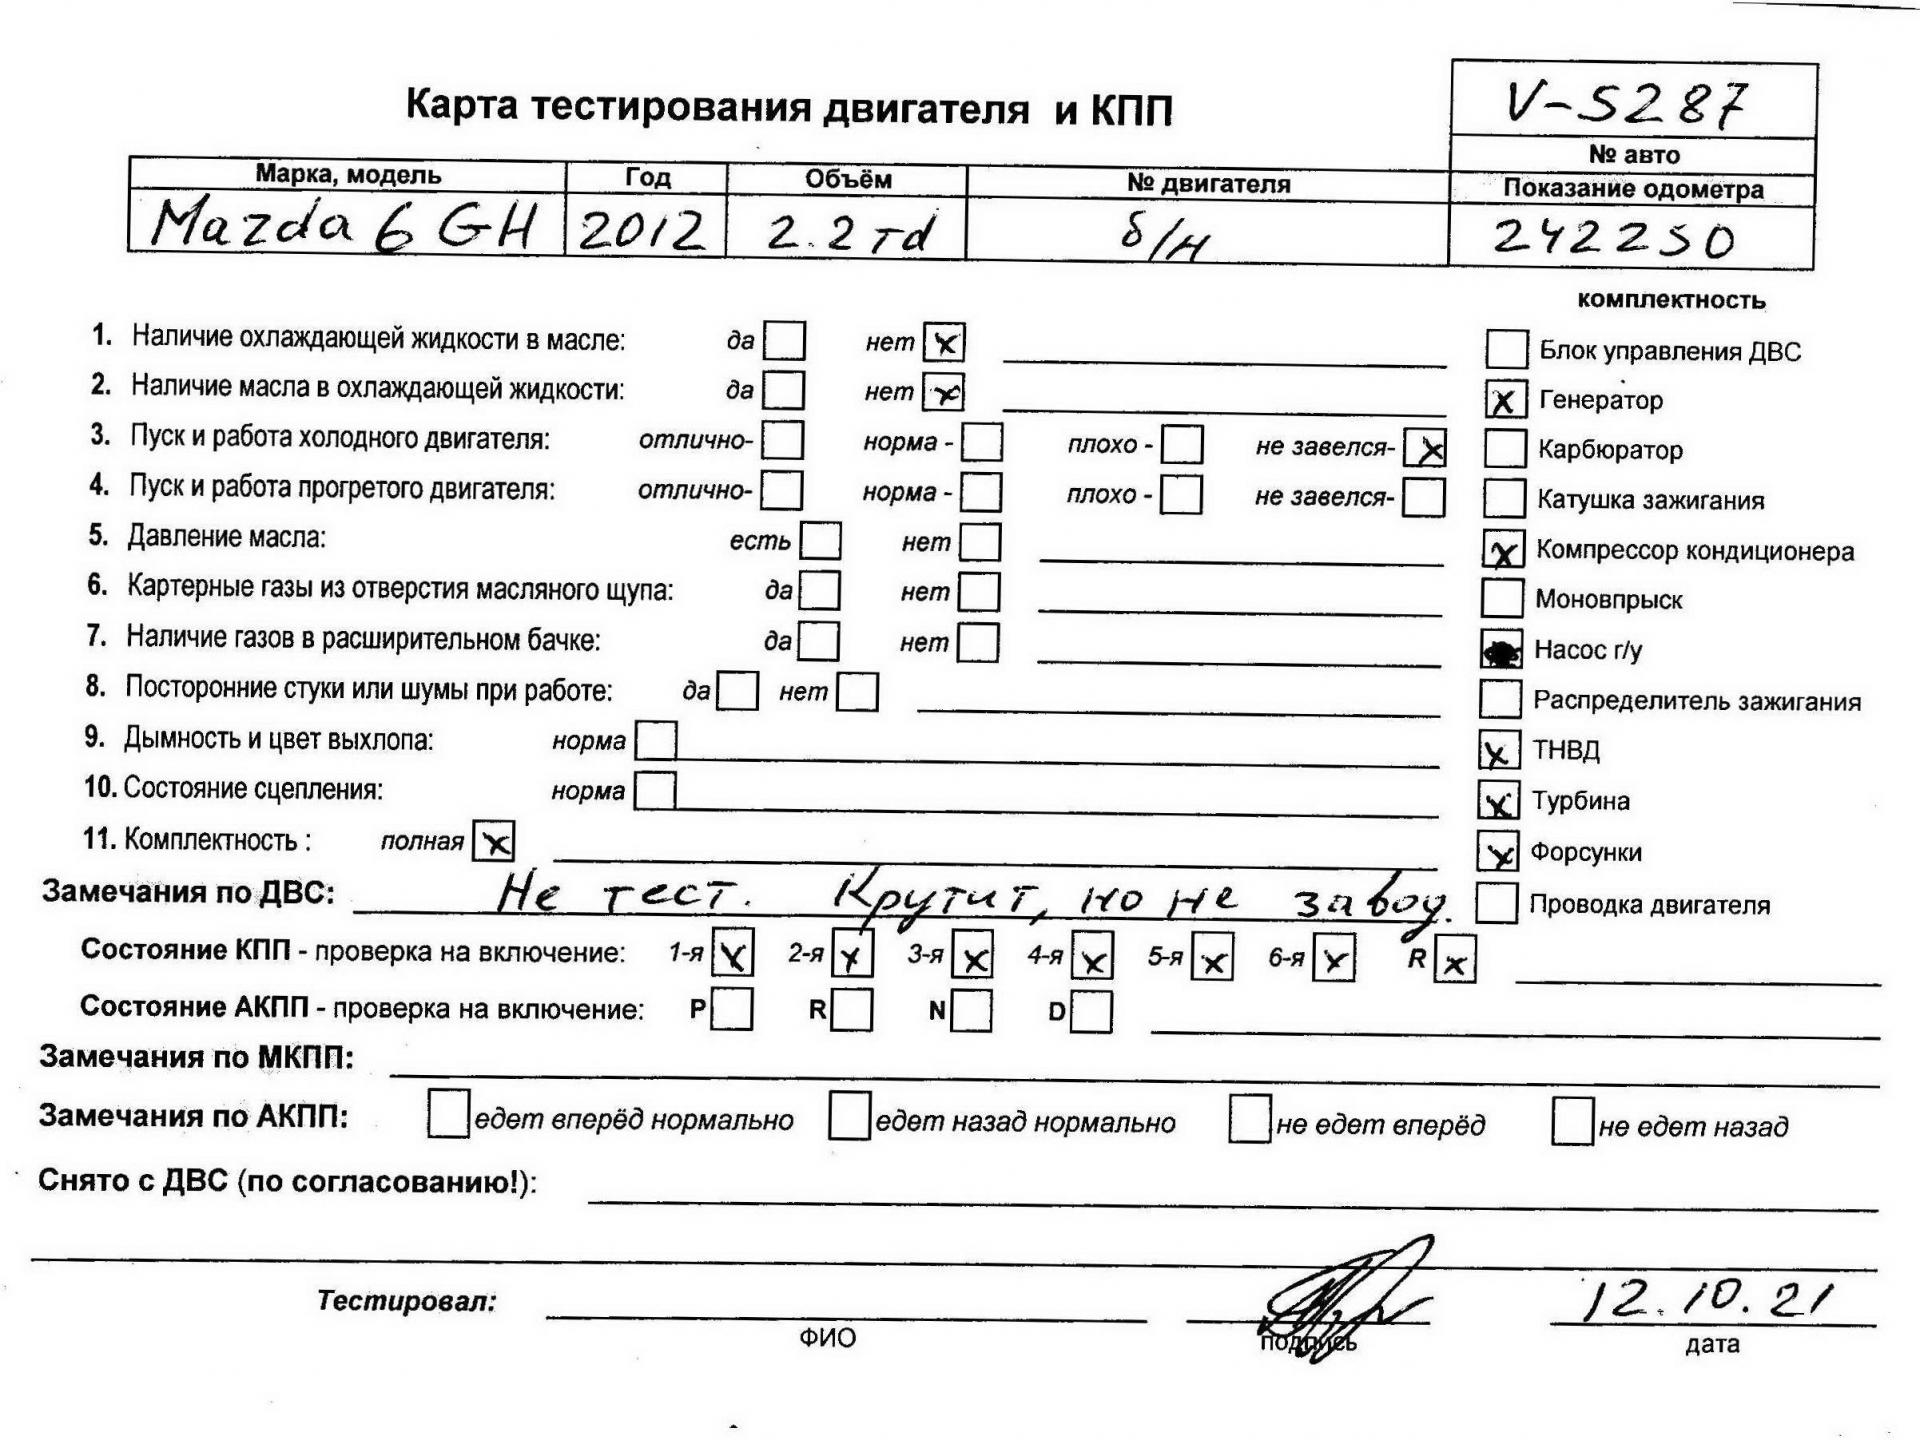 Карта тестирования двигателя и КПП
V-5287
№ авто
Марка, модель Год Объём № двигателя Показание одометра
Mazda 6 GH 2012 2.2 тd б/н 242250
комплектность
1. Наличие охлаждающей жидкости в масле: да нет x
2. Наличие масла в охлаждающей жидкости: да нет x
3. Пуск и работа холодного двигателя: отлично- норма - плохо - не завелся- x
4. Пуск и работа прогретого двигателя: отлично- норма - плохо - не завелся-
5. Давление масла: есть нет
6. Картерные газы из отверстия масляного щупа: да нет
7. Наличие газов в расширительном бачке: да нет
8. Посторонние стуки или шумы при работе: да нет
9. Дымность и цвет выхлопа: норма
10. Состояние сцепления: норма
11. Комплектность : полная x
Блок управления ДВС
x Генератор
Карбюратор
Катушка зажигания
x Компрессор кондиционера
Моновпрыск
Насос г/у
Распределитель зажигания
x ТНВД
x Турбина
x Форсунки
Проводка двигателя
Замечания по ДВС: Не тест. Крутит, но не завод.
Состояние КПП - проверка на включение: 1-я x 2-я x 3-я x 4-я x 5-я x 6-я x R x
Состояние АКПП - проверка на включение: P R N D
Замечания по МКПП:
Замечания по АКПП: едет вперёд нормально едет назад нормально не едет вперёд не едет назад
Снято с ДВС (по согласованию!):
Тестировал: 12.10.21
ФИО подпись дата